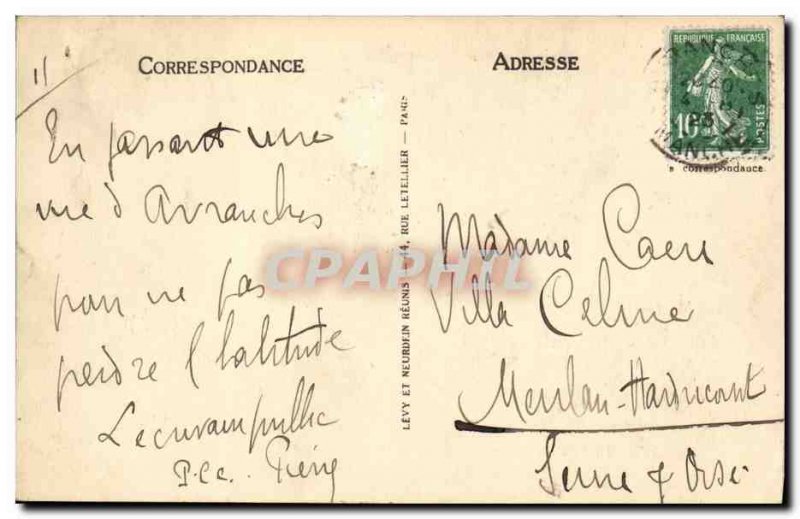 CORRESPONDANCE
En passant une
vue d'Avranches
pour ne pas
perdre l'habitude
P.c.c.
LÉVY ET NEURDEIN RÉUNIS — 44, RUE LETELLIER — PARIS
ADRESSE
RÉPUBLIQUE FRANÇAISE
10
POSTES
MANCHE
e correspondance
Madame Caen
Villa Celine
Meulan-Hardricourt
Seine & Oise
CPAPHIL